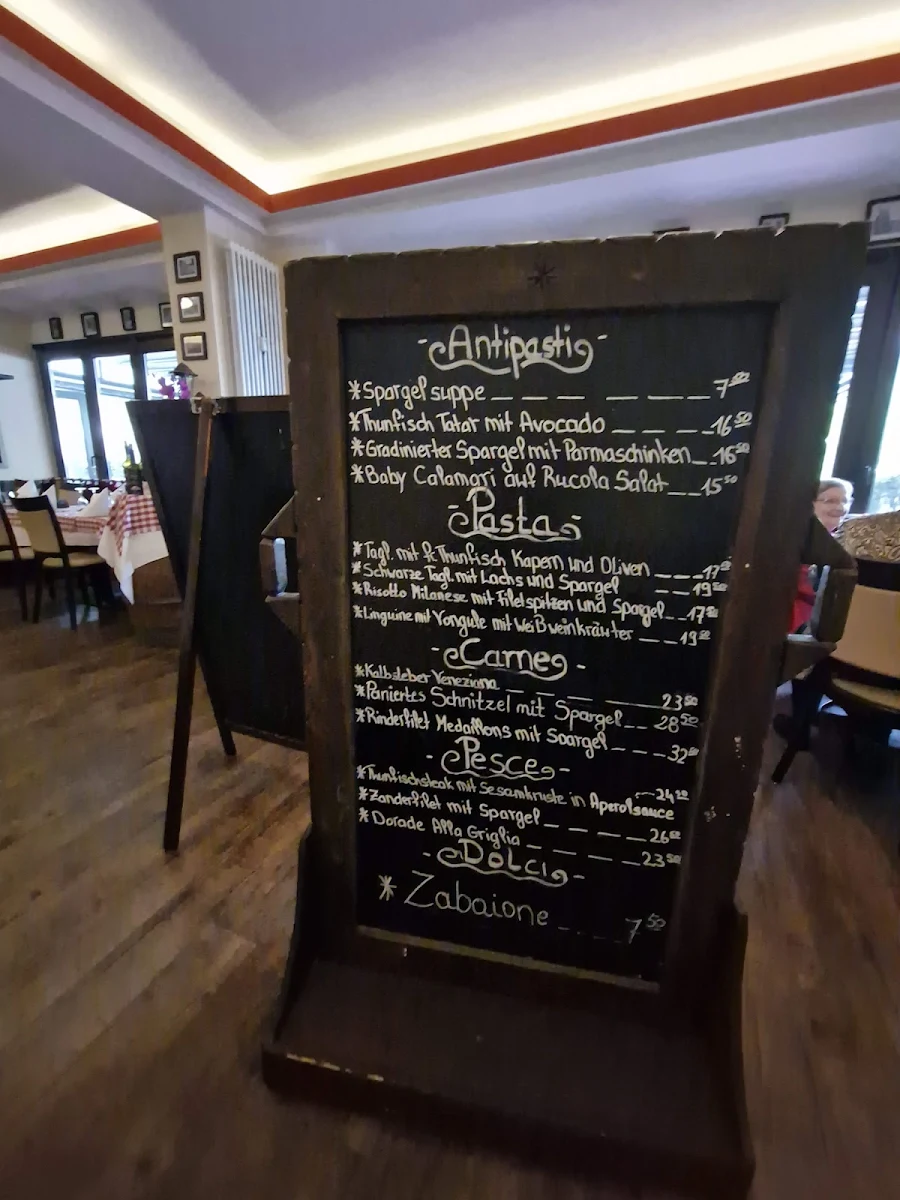 -Antipasti-
*Spargelsuppe _ _ _ _ _ _ 7⁵⁰
*Thunfisch Tatar mit Avocado _ _ _ _ 16⁵⁰
*Gradinierter Spargel mit Parmaschinken _ _ 16⁵⁰
*Baby Calamari auf Rucola Salat _ _ 15⁵⁰
-Pasta-
*Tagl. mit Thunfisch Kapern und Oliven _ _ _ 17
*Schwarze Tagl. mit Lachs und Spargel _ _ 19⁵⁰
*Risotto Milanese mit Filetspitzen und Spargel _ _ 17⁵⁰
*Linguine mit Vongule mit Weißweinkräuter _ _ 19
-Carne-
*Kalbsleber Veneziana _ _ _ _ 23⁵⁰
*Paniertes Schnitzel mit Spargel _ _ 28⁵⁰
*Rinderfilet Medaillons mit Spargel _ _ _ 32
-Pesce-
*Thunfischsteak mit Sesamkruste in Aperolsauce _ _ 24
*Zanderfilet mit Spargel _ _ _ _ 26
*Dorade Alla Griglia _ _ _ _ 23⁵⁰
-Dolci-
*Zabaione _ _ _ _ 7⁵⁰